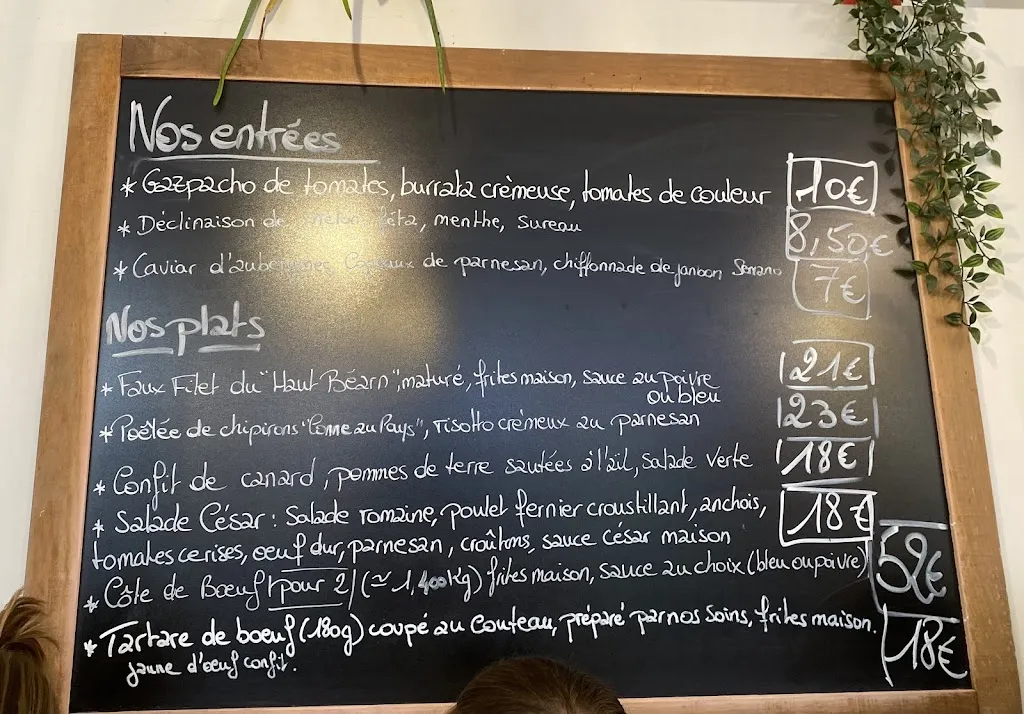 Nos entrées
* Gazpacho de tomates, burrata crèmeuse, tomates de couleur 10€
* Déclinaison de féta, menthe, sureau 8,50€
* Caviar d'aubergines, Copeaux de parmesan, chiffonnade de jambon Serrano 7€
Nos plats
* Faux Filet du "Haut-Béarn", maturé, frites maison, sauce au poivre 21€
ou bleu
* Poêlée de chipirons "Come au Pays", risotto crèmeux au parmesan 23€
* Confit de canard, pommes de terre sautées à l'ail, salade verte 18€
* Salade César : Salade romaine, poulet fermier croustillant, anchois, 18€
tomates cerises, oeuf dur, parmesan, croûtons, sauce césar maison
* Côte de Boeuf pour 2 (≃ 1,400Kg) frites maison, sauce au choix (bleu ou poivre) 52€
* Tartare de boeuf (180g) coupé au Couteau, préparé par nos soins, frites maison. 18€
jaune d'oeuf confit.